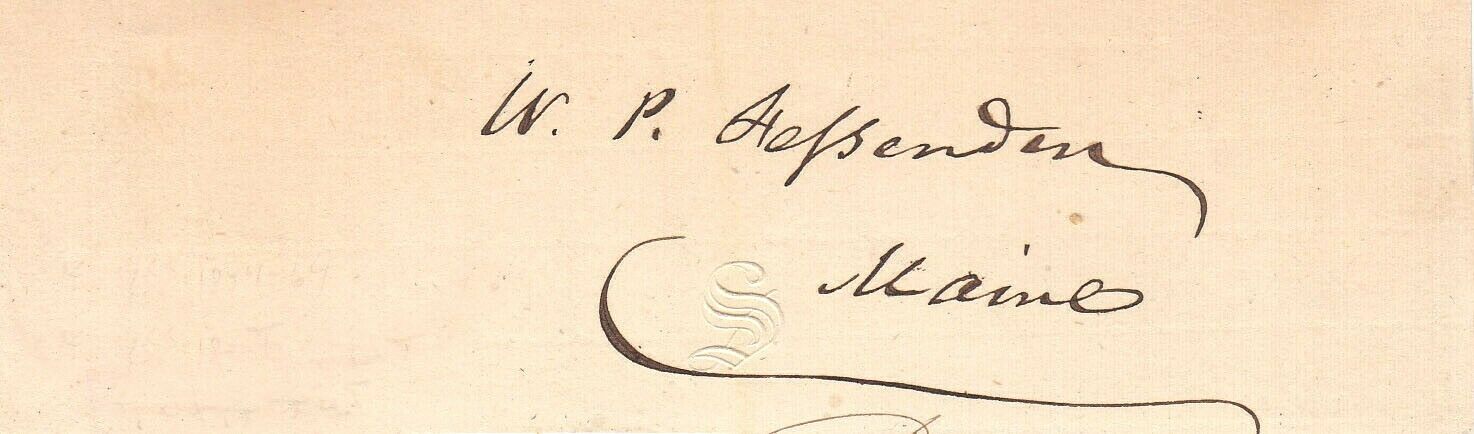 W. P. Fessenden
Maine
S